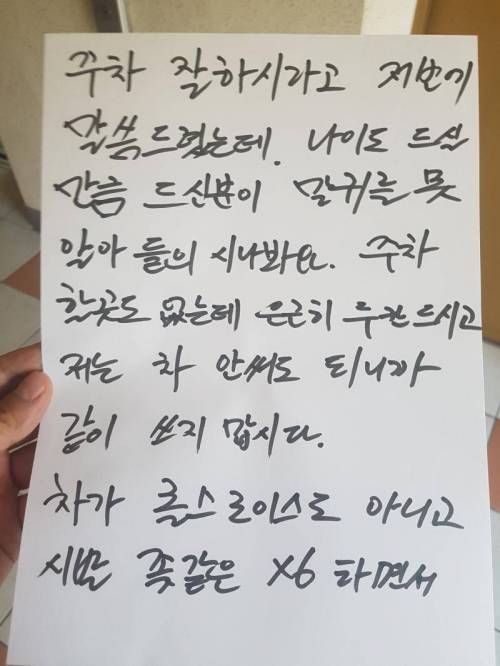 주차 잘하시라고 저번에
말씀드렸는데. 나이도 드실
만큼 드신분이 말귀를 못
알아 들으 시나봐요. 주차
할곳도 없는데 은근히 두칸 드시고
저는 차 안써도 되니까
같이 쓰지 맙시다.
차가 롤스로이스도 아니고
시발 좃같은 X6 타면서